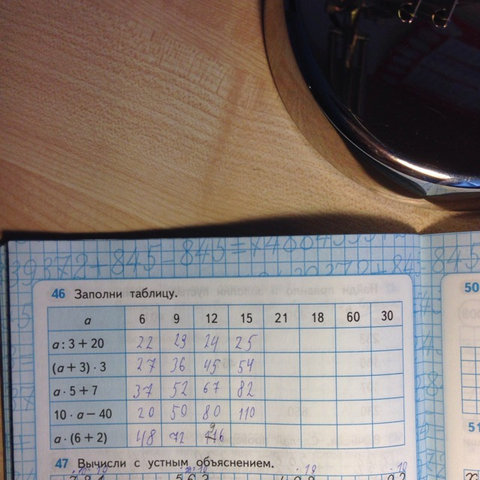 39372+845-845=
46 Заполни таблицу.
a 6 9 12 15 21 18 60 30
a : 3 + 20 22 23 24 25
(a + 3) · 3 27 36 45 54
a · 5 + 7 37 52 67 82
10 · a − 40 20 50 80 110
a · (6 + 2) 48 72
47 Вычисли с устным объяснением.
50
51